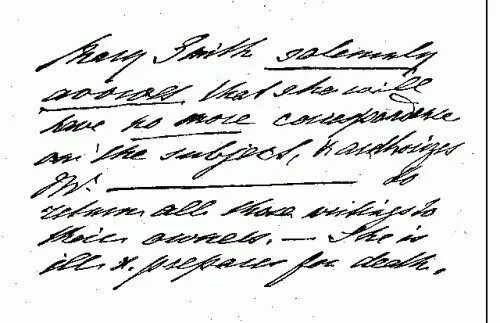 Mary Smith solemnly
avows that she will
have no more correspondence
on the subject, & authorizes
Mr. ______ to
return all those writings to
their owners. — She is
ill & prepares for death.